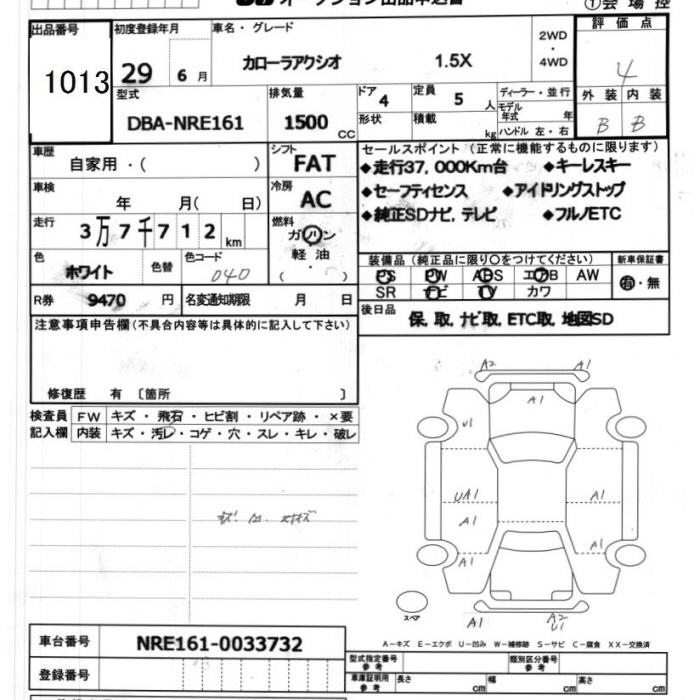 オークション出品申込書
①会場控
出品番号
1013
初度登録年月
29 6月
車名・グレード
カローラアクシオ 1.5X
2WD
・
4WD
評価点
4
外装 内装
B B
型式
DBA-NRE161
排気量
1500 CC
ドア 4
形状
定員 5 人
積載 kg
ディーラー・並行
モデル年式 年
ハンドル 左・右
車歴
自家用・( )
シフト
FAT
車検
年 月( 日)
冷房
AC
走行
3万7千712 km
燃料
ガソリン
・
軽油
( )
色
ホワイト
色替
色コード
040
R券 9470 円
名変通知期限 月 日
セールスポイント(正常に機能するものに限ります)
◆走行37,000Km台 ◆キーレスキー
◆セーフティセンス ◆アイドリングストップ
◆純正SDナビ,テレビ ◆フルノETC
装備品(純正品に限り〇をつけてください)
PS PW ABS エアB AW
SR ナビ TV カワ
新車保証書
有・無
後日品
保,取,ナビ取,ETC取,地図SD
注意事項申告欄(不具合内容等は具体的に記入して下さい)
修復歴 有 〔箇所 〕
検査員
記入欄
FW キズ・飛石・ヒビ割・リペア跡・×要
内装 キズ・汚レ・コゲ・穴・スレ・キレ・破レ
A2 A1
A1
U1
UA1 A1
A1
A1 A1
スペア
A1 A2
U1
A-キズ E-エクボ U-凹み W-補修跡 S-サビ C-腐食 XX-交換済
車台番号
NRE161-0033732
登録番号
型式指定番号
参考
類別区分番号
参考
車庫証明用
参考
長さ cm 幅 cm 高さ cm